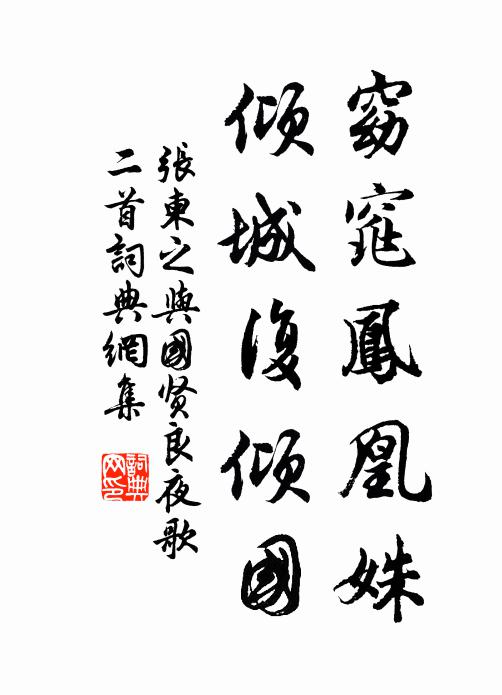 窈窕鳳凰姝
傾城復傾國
張柬之與國賢良夜歌
二首詞典網集
詞典
网印